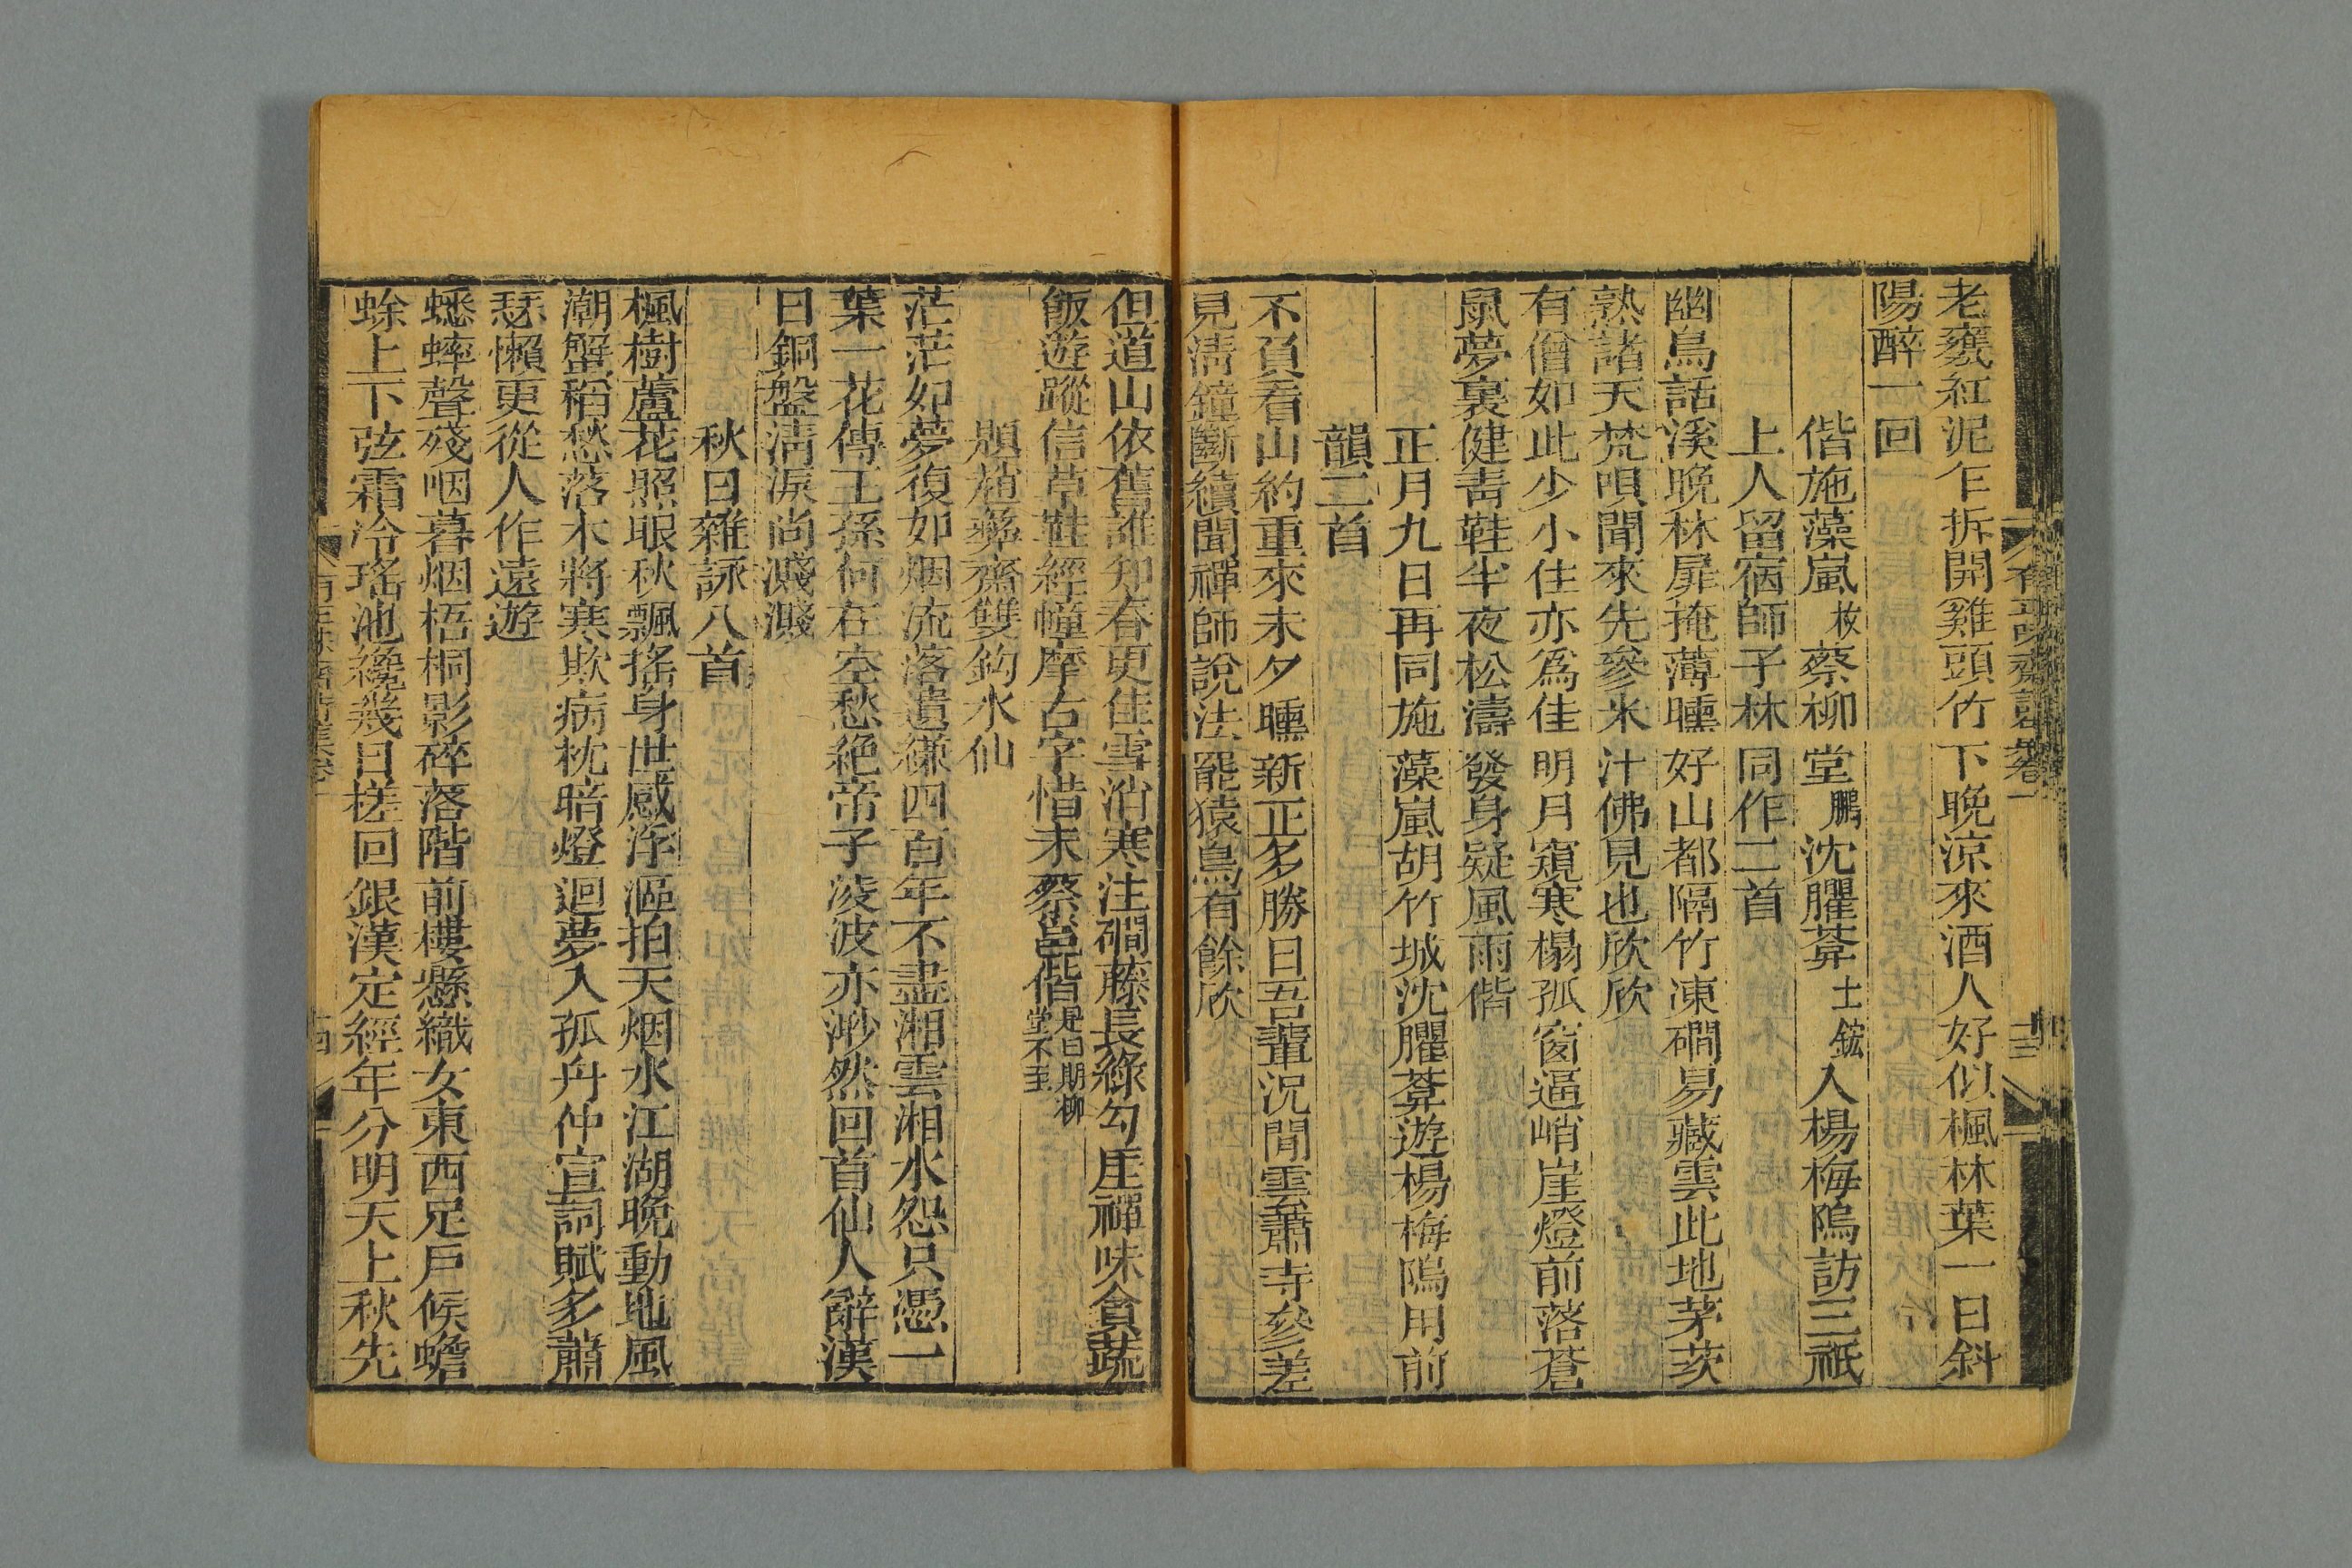 老甕紅泥乍拆開雞頭竹下晚涼來酒人好似楓林葉一日斜
陽醉一回
偕施藻嵐 蔡柳堂鵬沈臞葊士鋐入楊梅隖訪三祇
上人留宿師子林同作二首
幽鳥話溪晚林扉掩薄曛好山都隔竹凍磵易藏雲此地茅茨
熟諸天梵唄聞來先參米汁佛見也欣欣
有僧如此少小住亦爲佳明月窺寒榻孤窗逼峭崖燈前落蒼
鼠夢裏健靑鞋半夜松濤發身疑風雨偕
正月九日再同施藻嵐胡竹城沈臞葊遊楊梅隖用前
韻二首
不負看山約重來未夕曛新正多勝日吾輩況閒雲蕭寺參差
見淸鐘斷續聞禪師說法罷猿鳥有餘欣
但道山依舊誰知春更佳雪消寒注磵藤長綠勾厓禪味貪蔬
飯遊蹤信草鞋經幢摩古字惜未蔡邕偕是日期柳堂不至
題趙彝齋雙鈎水仙
茫茫如夢復如烟流落遺縑四百年不盡湘雲湘水怨只憑一
葉一花傳王孫何在空愁絕帝子凌波亦渺然回首仙人辭漢
日銅盤淸淚尚濺濺
秋日雜詠八首
楓樹蘆花照眼秋飄搖身世感浮漚拍天烟水江湖晚動地風
潮蟹稻愁落木將寒欺病枕暗燈迴夢入孤舟仲宣詞賦多蕭
瑟懶更從人作遠遊
蟋蟀聲殘咽暮烟梧桐影碎落階前樓懸織女東西足戶候蟾
蜍上下弦霜冷瑤池纔幾日槎回銀漢定經年分明天上秋先